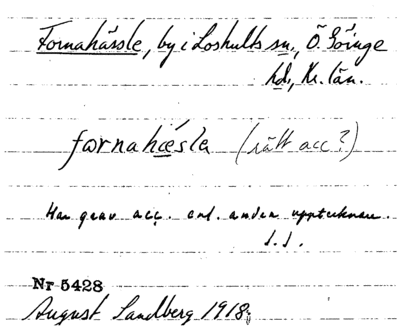 Fornahässle, by i Loshults sn., Ö. Göinge
hd., Kr. län.
fornahæ̀sla (rätt acc?)
Har grav acc. enl. andra upptecknare.
J.J.
Nr 5428
August Sandberg 1918.